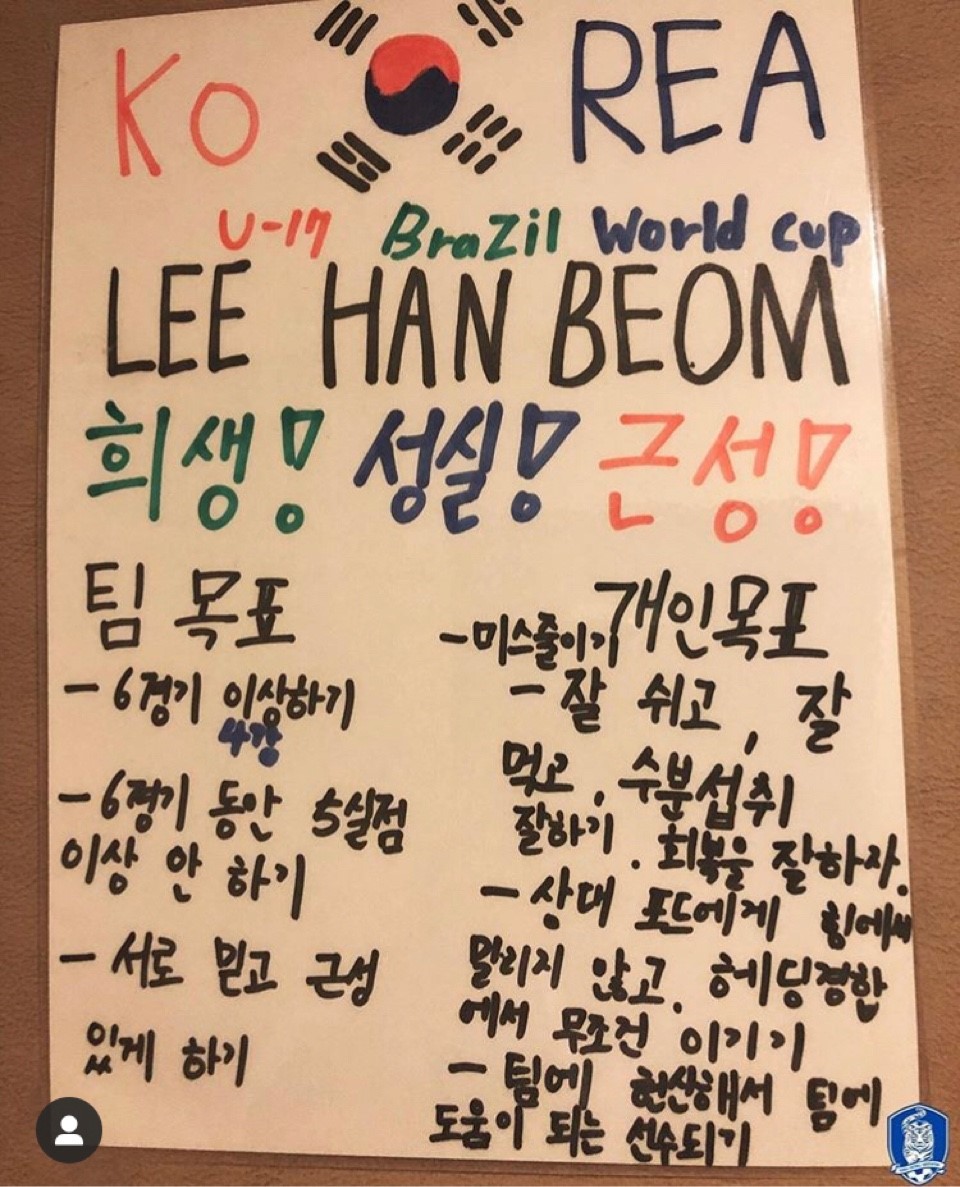 KO REA
U-17 Brazil World cup
LEE HAN BEOM
희생! 성실! 근성!
팀 목표
- 6경기 이상하기
4강
- 6경기 동안 5실점
이상 안 하기
- 서로 믿고 근성
있게 하기
개인목표
- 미스줄이기
- 잘 쉬고, 잘
먹고, 수분섭취
잘하기. 회복을 잘하자.
- 상대 포드에게 힘에서
말리지 않고. 헤딩경합
에서 무조건 이기기
- 팀에 헌신해서 팀에
도움이 되는 선수되기